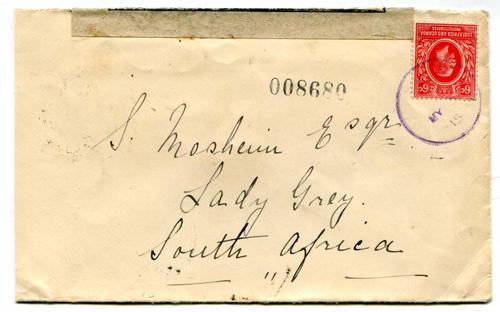 EAST AFRICA AND UGANDA
PROTECTORATES
6c 6c
MY
15
008680
S. Mosheim Esqr
Lady Grey.
South Africa